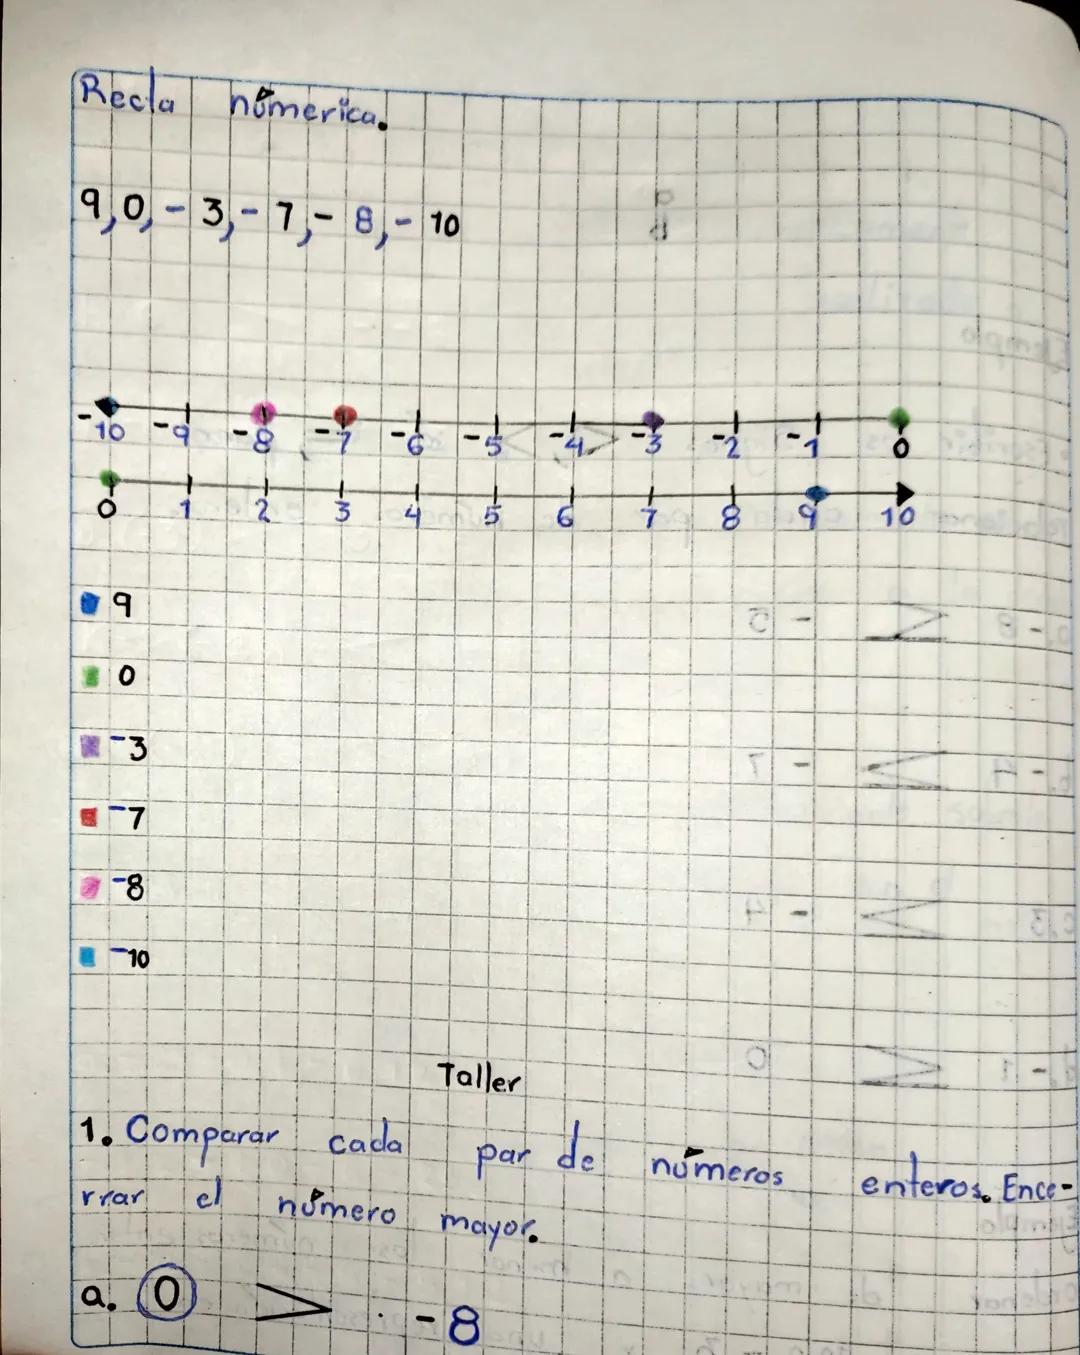 Recta númerica.
9, 0, - 3, - 7, - 8, - 10
-10 -9 -8 -7 -6 -5 -4 -3 -2 -1 0
0 1 2 3 4 5 6 7 8 9 10
9
0
-3
-7
-8
-10
Taller
1. Comparar cada par de números enteros. Ence-
rrar el número mayor.
a. 0 > -8